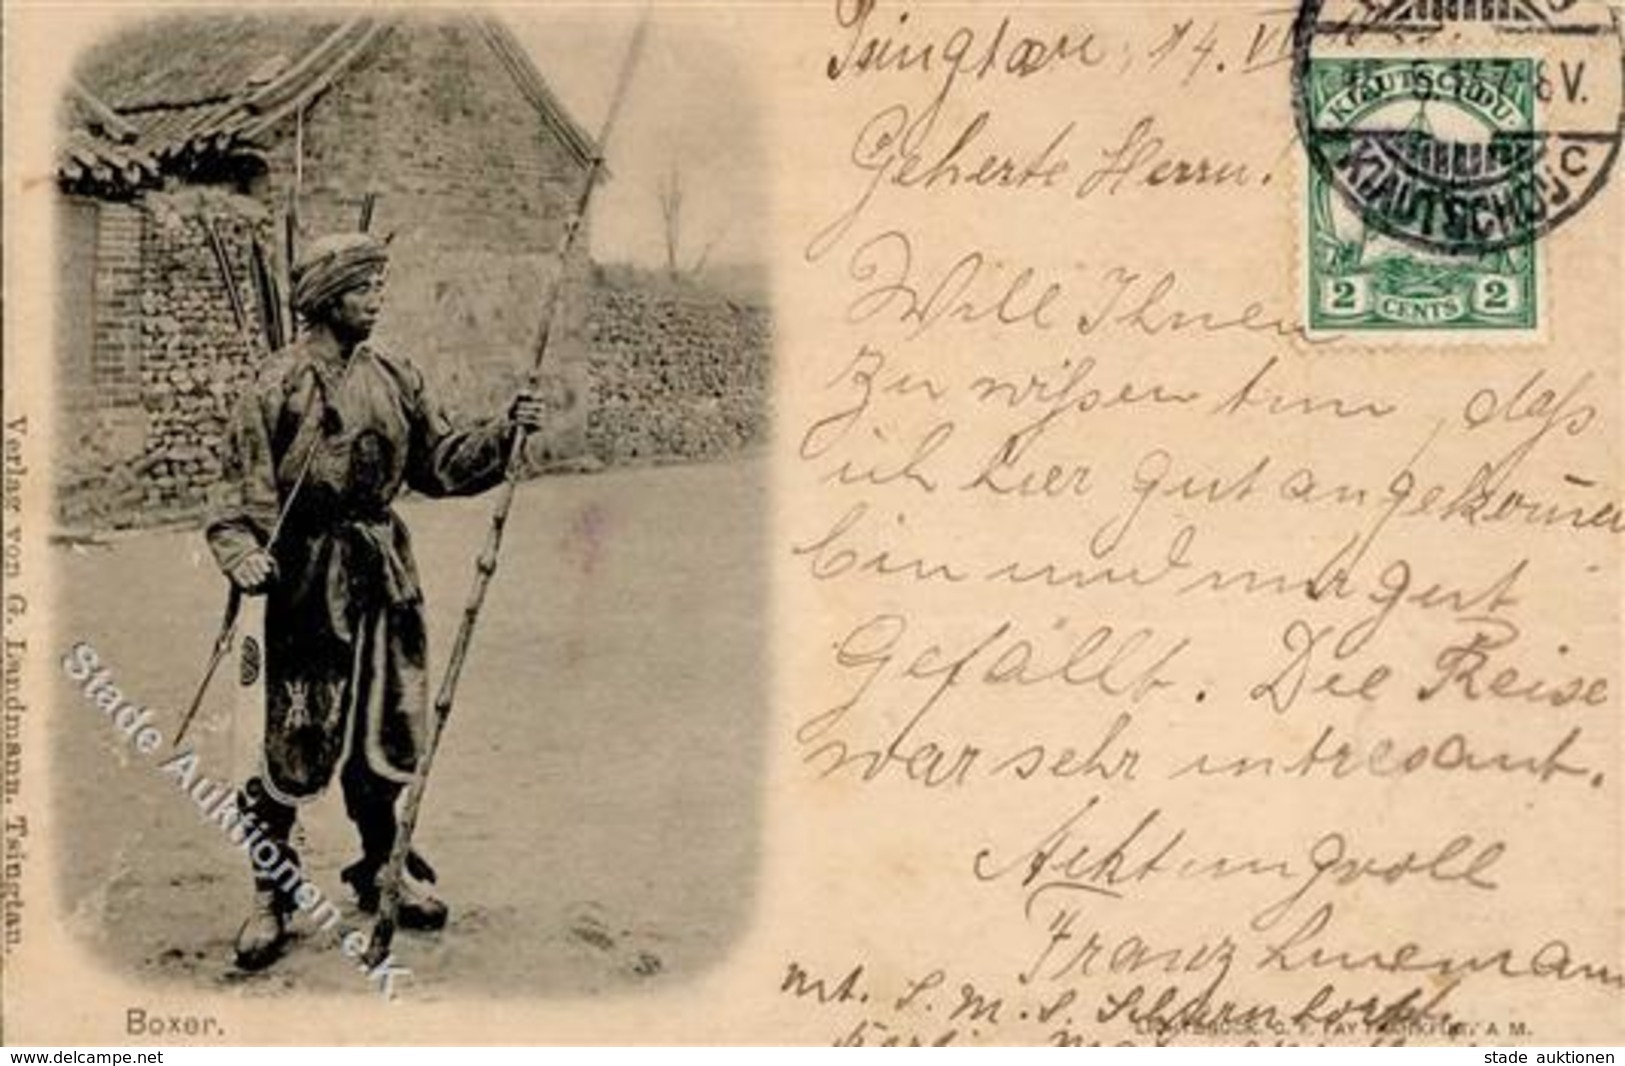 Tsingtau, 14. VI
Geherte Herrn.
Will Ihnen
zu wissen tun, daß
ich hier gut angekom̄en
bin und mir gut
Gefällt. Die Reise
war sehr intresant.
Achtungvoll
Franz Linemann
S. M. S. Scharnhorst
KIAUTSCHOU
2 CENTS 2
KIAUTSCHOU
C
Verlag von G. Landmann. Tsingtau.
Boxer.
Stade Auktionen e.K.
www.delcampe.net
stade auktionen